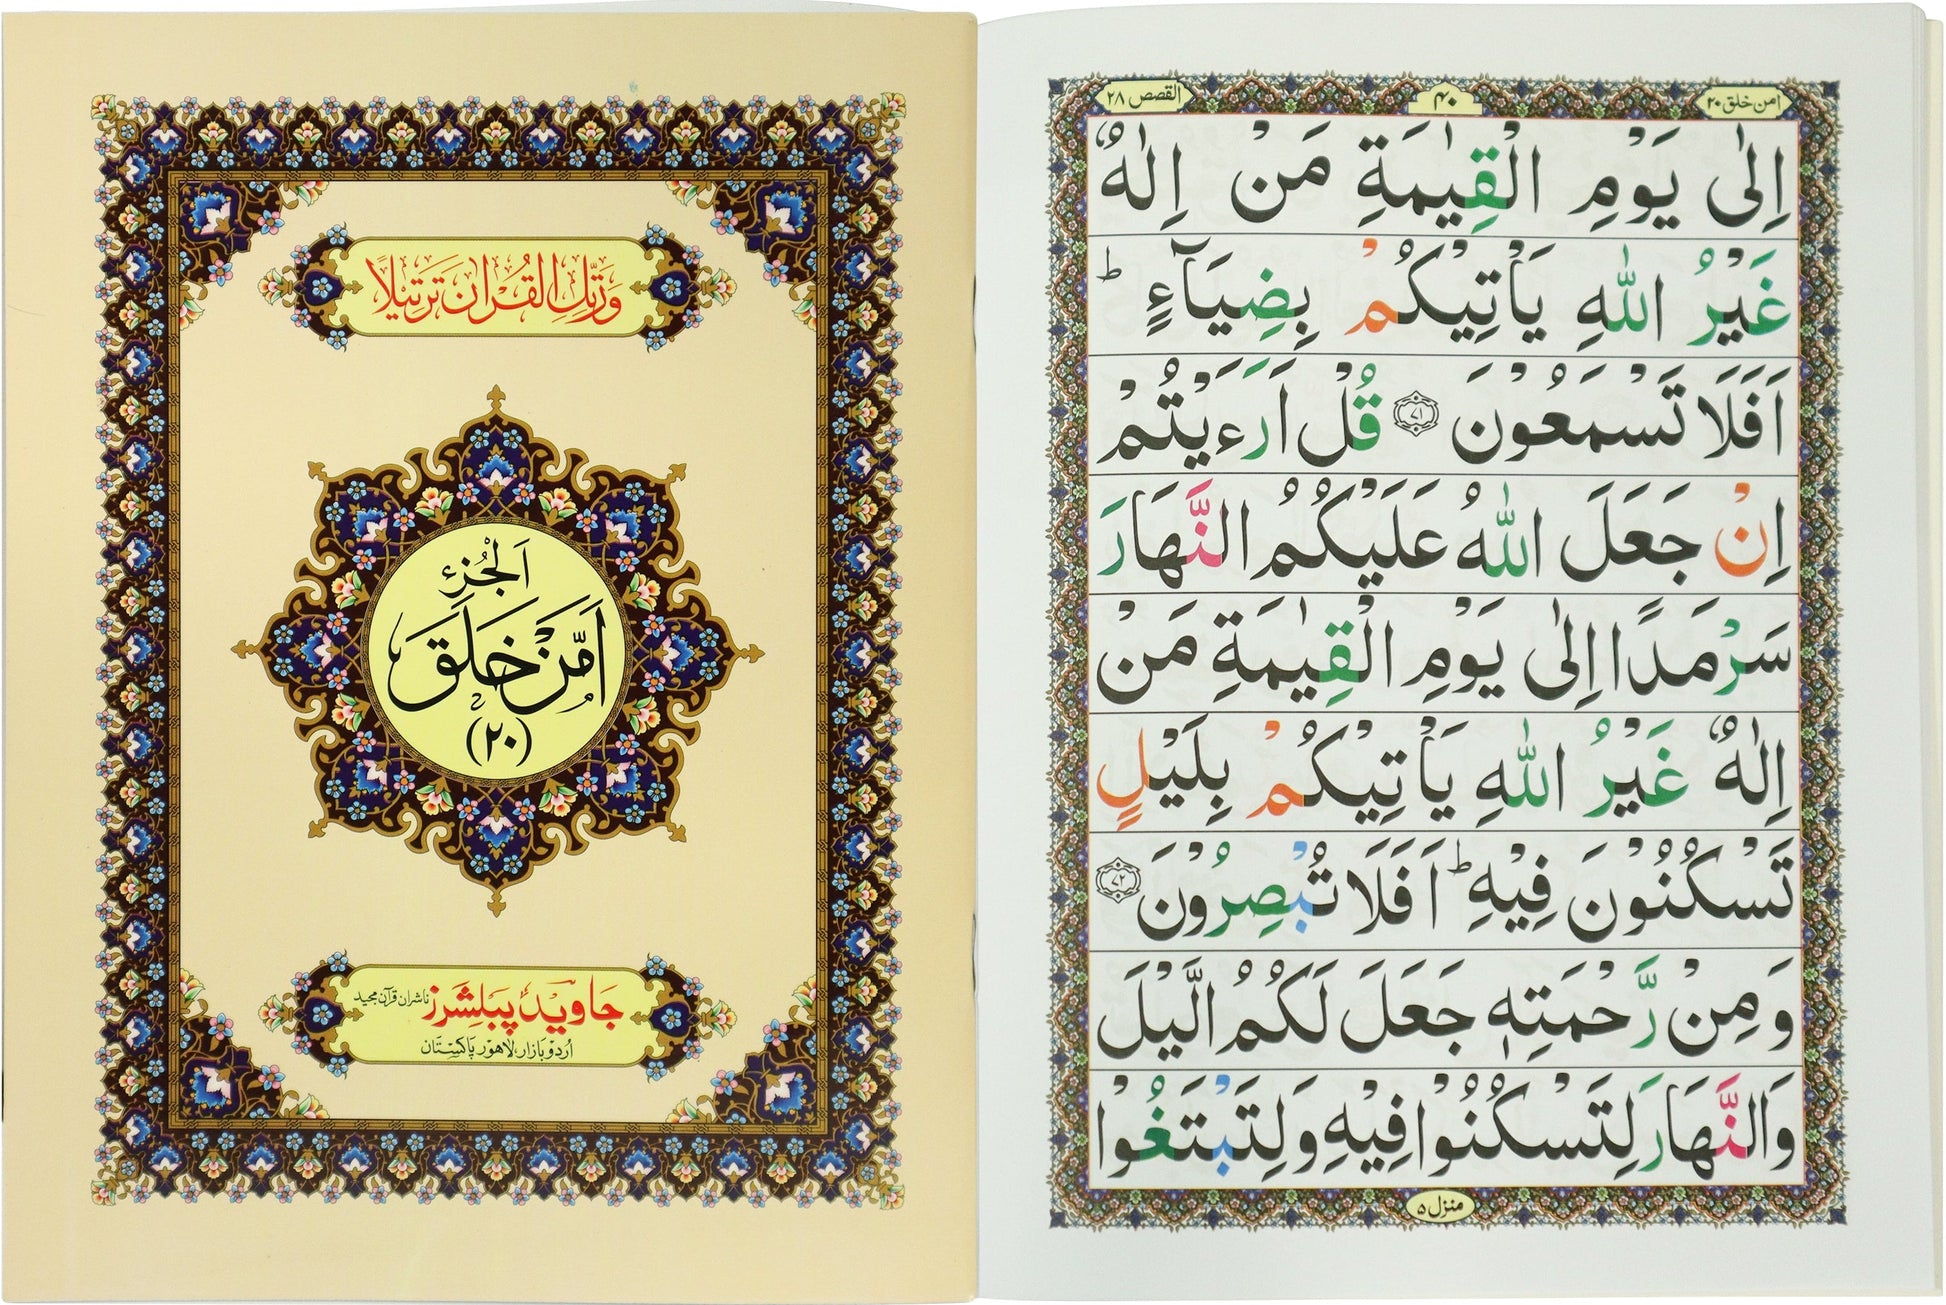 وَرَتِّلِ الْقُرْاٰنَ تَرْتِيْلًا
اَلْجُزْءُ
اَمَّنْ خَلَقَ
(۲۰)
جاوید پبلشرز ناشران قرآن مجید
اُردو بازار، لاہور پاکستان
امن خلق ۲۰
۴۰
القصص ۲۸
اِلٰى يَوْمِ الْقِيٰمَةِ مَنْ اِلٰهٌ
غَيْرُ اللّٰهِ يَاْتِيْكُمْ بِضِيَآءٍ ؕ
اَفَلَا تَسْمَعُوْنَ ۷۱ قُلْ اَرَءَيْتُمْ
اِنْ جَعَلَ اللّٰهُ عَلَيْكُمُ النَّهَارَ
سَرْمَدًا اِلٰى يَوْمِ الْقِيٰمَةِ مَنْ
اِلٰهٌ غَيْرُ اللّٰهِ يَاْتِيْكُمْ بِلَيْلٍ
تَسْكُنُوْنَ فِيْهِ ؕ اَفَلَا تُبْصِرُوْنَ ۷۲
وَمِنْ رَّحْمَتِهٖ جَعَلَ لَكُمُ الَّيْلَ
وَالنَّهَارَ لِتَسْكُنُوْا فِيْهِ وَلِتَبْتَغُوْا
منزل ۵